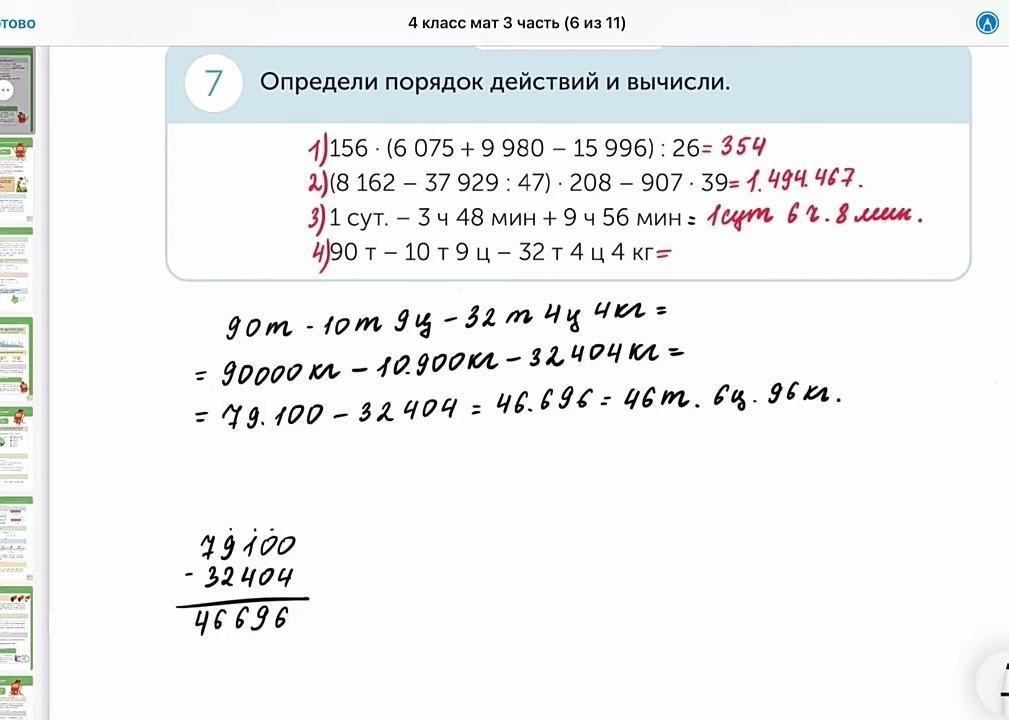 отово
4 класс мат 3 часть (6 из 11)
7 Определи порядок действий и вычисли.
1) 156 · (6 075 + 9 980 – 15 996) : 26 = 354
2) (8 162 – 37 929 : 47) · 208 – 907 · 39 = 1.494.467.
3) 1 сут. – 3 ч 48 мин + 9 ч 56 мин = 1 сут 6 ч. 8 мин.
4) 90 т – 10 т 9 ц – 32 т 4 ц 4 кг =
90т - 10т 9ц – 32т 4ц 4кг =
= 90000кг – 10.900кг – 32404кг =
= 79.100 – 32404 = 46.696 = 46т. 6ц. 96кг.
79100
- 32404
46696